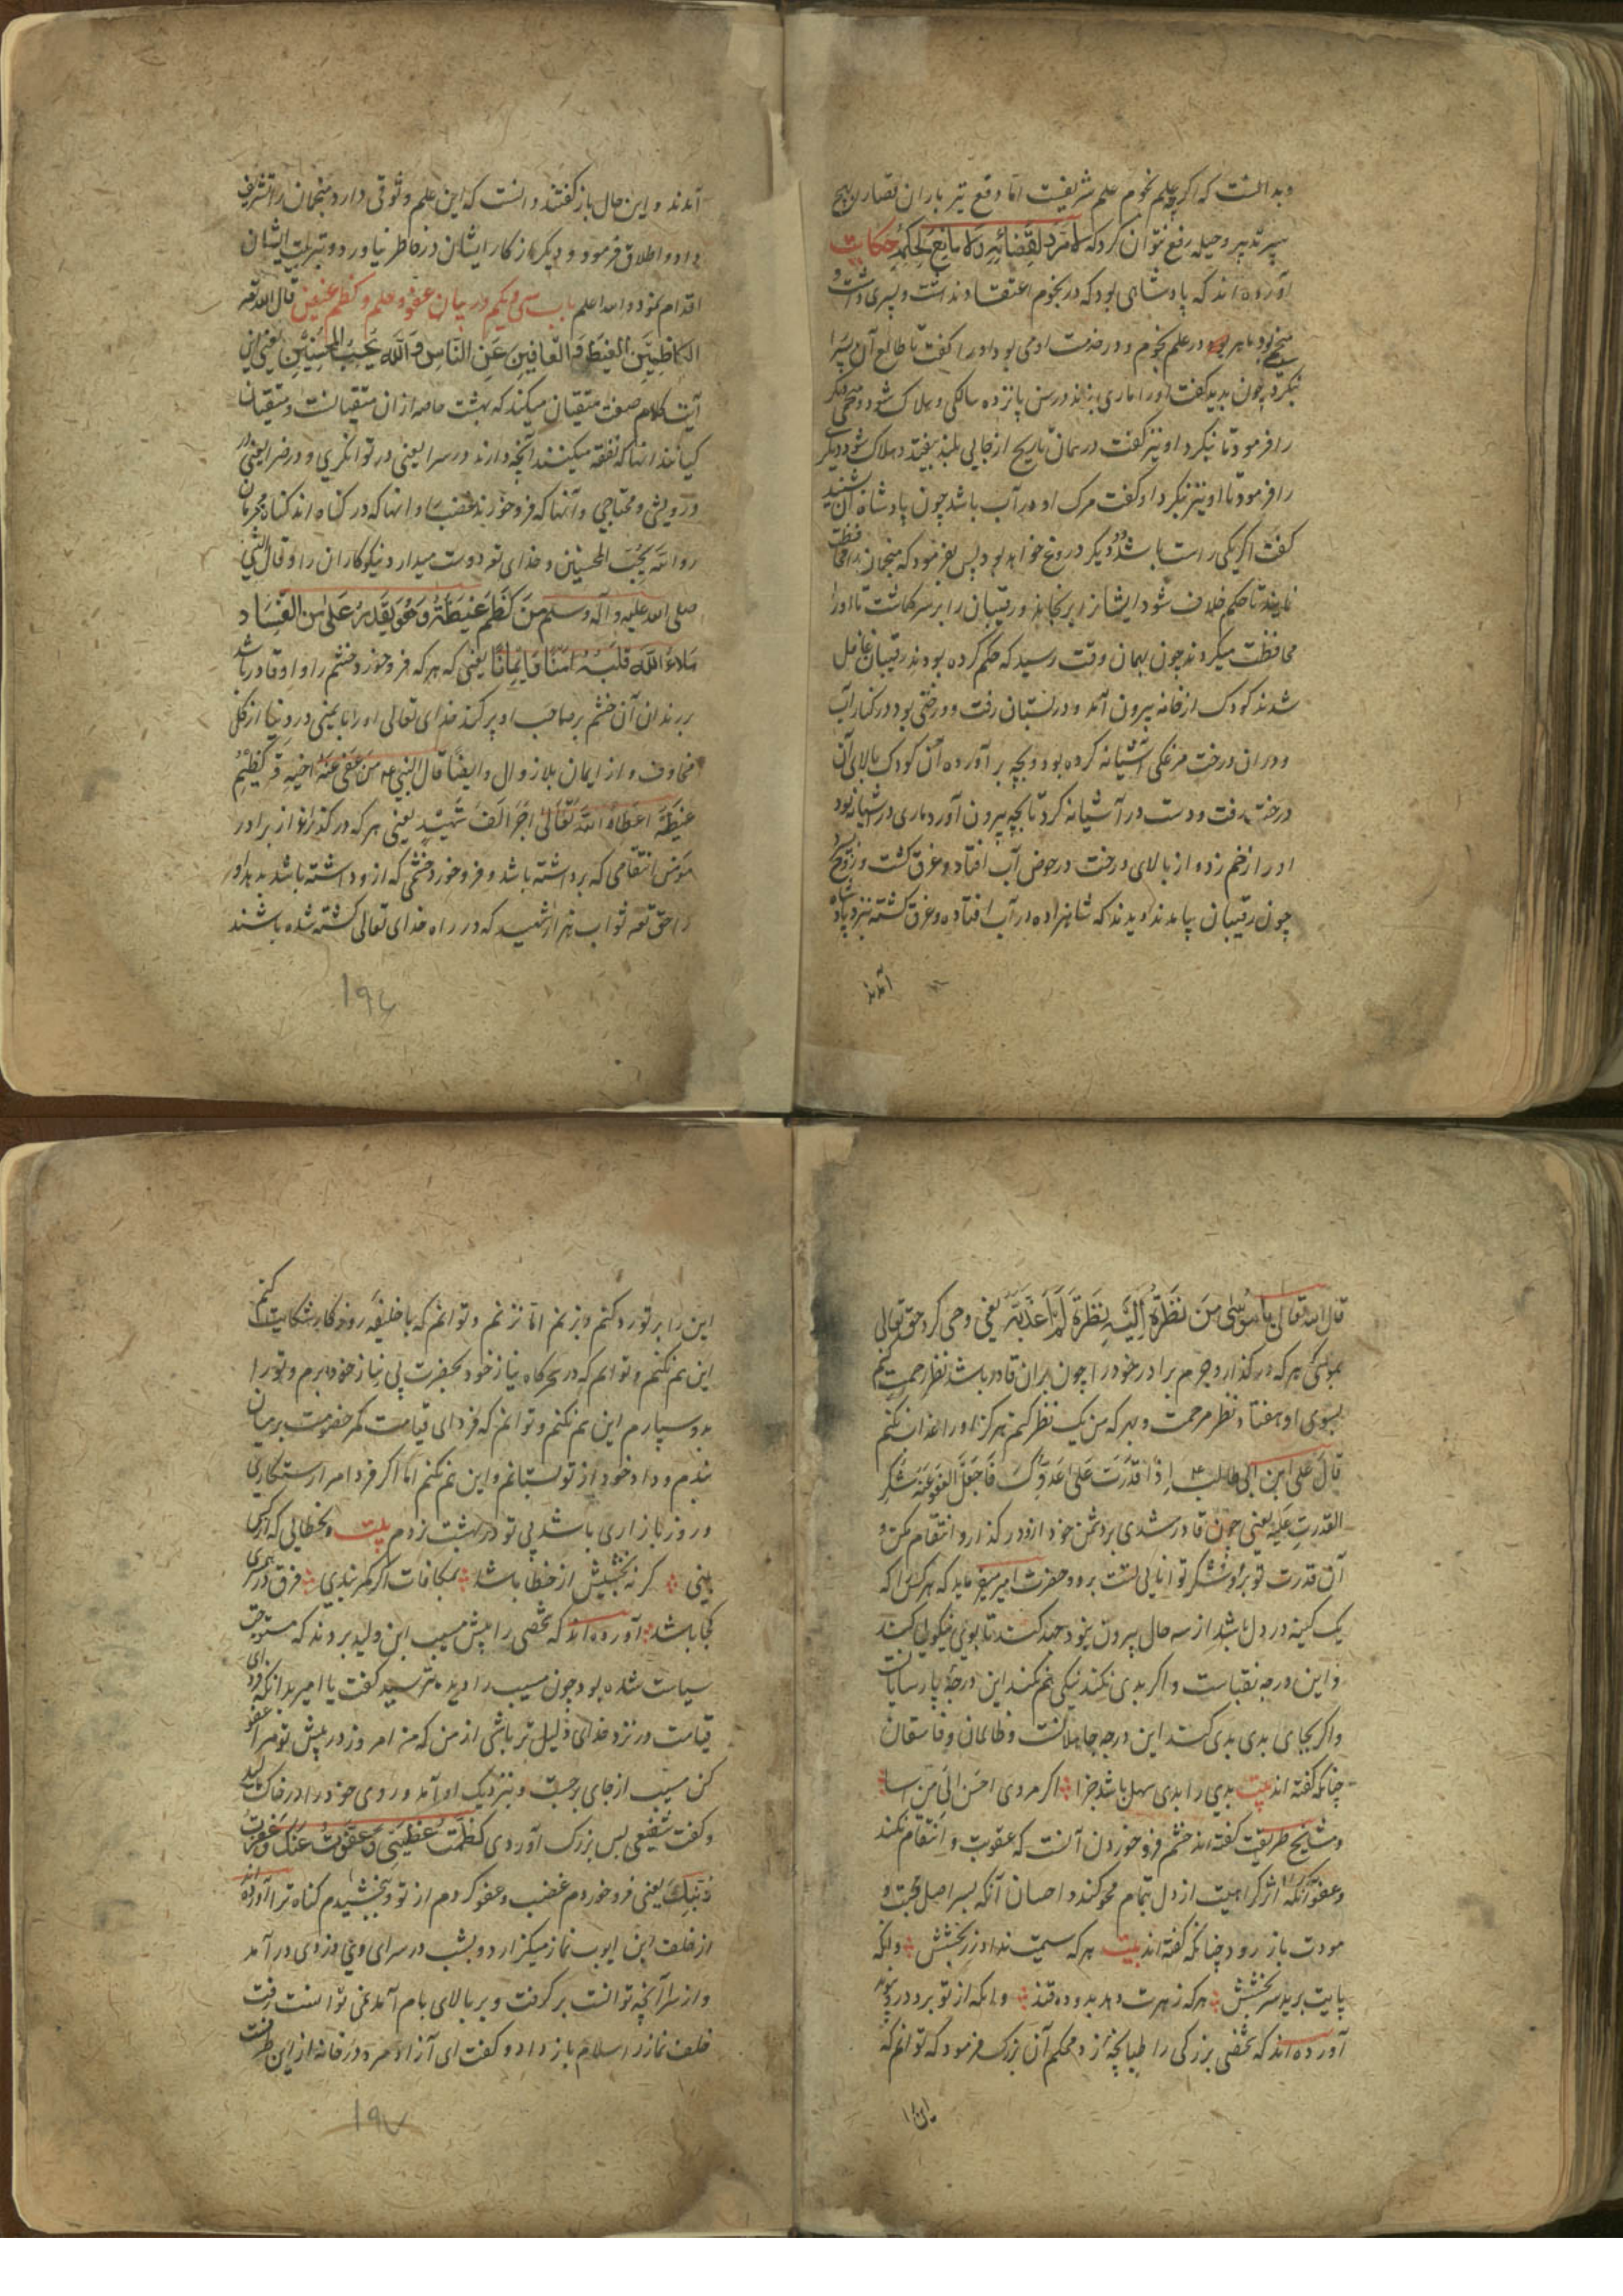 و بدانست که اگرچه علم نجوم علم شریفست اما دفع تیر باران قضا را بهیچ
سپر تدبیر و حیله رفع نتوان کرد که لا مرد لقضائه ولا مانع لحکمه حکایت
آورده اند که پادشاهی بود که در نجوم اعتقاد نداشت و پسری داشت و
منجم بود ماهر در علم نجوم و در خدمت او می بود او را گفت تا طالع آن پسر را
بنگرد چون بدید گفت او را ماری بزند در سن پانزده سالگی و هلاک شود و منجمی دیگر
را فرمود تا بنگرد او نیز گفت در همان تاریخ از جایی بلند بیفتد و هلاک شود و دیگر
را فرمود تا او نیز بنگرد او گفت مرک او در آب باشد چون پادشاه آن بشنید
گفت اگر یکی راست باشد دو دیگر دروغ خواهد بود پس بفرمود که منجمان را محافظت
نمایند تا حکم خلاف شود ایشانرا برنجاند و رقیبان را بر سر کماشت تا او را
محافظت میکردند چون بهمان وقت رسید که حکم کرده بودند رقیبان غافل
شدند کودک از خانه بیرون آمد و در بستان رفت و درختی بود در کنار آب
و در ان درخت مرغکی آشیانه کرده بود و بچه بر آورده آن کودک بالای آن
درخت رفت و دست در آشیانه کرد تا بچه بیرون آورد ماری در آشیانه بود
او را زخم زد و از بالای درخت در حوض آب افتاد و غرق گشت
چون رقیبان بیامدند و دیدند که شاهزاده در آب افتاده و غرق کشته نزد پادشاه
آمدند
آمدند و این حال باز گفتند دانست که این علم وثوقی دارد منجمان را تشریف
داد و اطلاق فرمود و دیگر از کار ایشان در خاطر نیاورد و تبربیت ایشان
اقدام نمود و الله اعلم باب سی و یکم در بیان عفو و حلم و کظم غیض قال الله تعه
الکاظمین الغیظ و العافین عن الناس و الله یحب المحسنین یعنی این
آیت کلام صفت متقیان میکند که بهشت خاصه از ان متقیانست و متقیان
کیانند انها که نفقه میکنند آنچه دارند در سرا یعنی در توانگری و در ضرا یعنی در
درویشی و محتاجی و آنها که فرو خورند غضب را و انها که در گذرانند کناه مجرمان
را و الله یحب المحسنین و خدای تعه دوست میدارد نیکوکاران را و قال النبی
صلی الله علیه و آله و سلم من کظم غیظة و هو یقدر علی انفاذ
ملاء الله قلبه امنا و ایمانا یعنی که هر که فرو خورد خشم را و او قادر باشد
بر راندن آن خشم بر صاحب او پر کند خدای تعالی او را بایمنی در دنیا از کل
مخاوف و از ایمان بلا زوال و ایضا قال النبی من عفی عنه اخیه و کظیم
غیظه اعطاه الله تعالی اجر الف شهید یعنی هر که در گذراند از برادر
مؤمن انتقامی که برداشته باشد و فرو خورد خشمی که از و داشته باشد بدهد او
را حق تعه ثواب هزار شهید که در راه خدای تعالی کشته شده باشند
۱۹۶
قال الله تعالی یا موسی من نظرة الیه نظرة لم اعذبه یعنی وحی کرد حق تعالی
بموسی هر که در گذارد جرم برادر خود را چون بران قادر باشد نظر رحمت کنم
بسوی او هفتاد نظر مرحمت و بهر که من یک نظر کنم هرکز او را عذاب نکنم
قال علی ابن ابی طالب ع اذا قدرت علی عدوک فاجعل العفو عنه شکر
القدرت علیه یعنی چون قادر شدی بر دشمن خود ازو در گذار و انتقام مکن و
آن قدرت تو برو شکر توانایی تست برو و حضرت امیر میفرماید که هر کس را که
یک کینه در دل باشد از سه حال بیرون نبود جهد کند تا بوی نیکویی کند
و این درجه نقباست و اکر بدی نکند نیکی هم نکند این درجه پارسایانست
و اکر بجای بدی بدی کند این درجه جاهلانست و ظالمان و فاسقان
چنانکه گفته اند بیت بدی را بدی سهل باشد جزا اکر مردی احسن الی من اسا
و مشایخ طریقت گفته اند خشم فرو خوردن آنست که عقوبت و انتقام نکند
و عفو آنکه اثر کراهیت از دل بتمام محو کند و احسان آنکه بسر اصل محبت و
مودت باز رود چنانکه گفته اند بیت هر که سیمت نداد زر بخشش وانکه
پایت برید سر بخشش هر که زهرت دهد بدو ده قند وانکه از تو برد درو پیوند
آورده اند که شخصی بزرکی را طپانچه زد محکم آن بزرک فرمود که توانم که
این را
این را بر تو رد کنم و بزنم اما نزنم و توانم که با خلیفه روزگار شکایت کنم
این هم نکنم و توانم که در سحرکاه نیاز خود بحضرت بی نیاز خود برم و تو را
بدو سپارم این هم نکنم و توانم که فردای قیامت کمر خصومت بر میان
بندم و داد خود از تو بستانم و این هم نکنم اما اگر فردا مرا رستکاری
و روز بازاری باشد بی تو در بهشت نروم بیت و بخطایی که از کسی
بینی کر نه بخشیش از خطا باشد بمکافات اکر کمر بندی فرق در همری
کجا باشد آورده اند که شخصی را پیش مسیب ابن ولید بردند که مستوجب
سیاست شده بود چون مسیب را دید بترسید گفت یا امیر بدانکه فردای
قیامت در نزد خدای ذلیل تر باشی از من که من امروز در پیش تو مرا عفو
کن مسیب از جای برجست و بنزدیک او آمد و روی خود را در خاک مالید
و کفت شفیعی بس بزرک آوردی کظمت غظبتی و عفوت عنک و غفرت
ذنبک یعنی فرو خوردم غضب و عفو کردم از تو و بخشیدم کناه ترا آورده اند
از خلف ابن ایوب نماز میکزارد و بشب در سرای وی دزدی در آمد
و از سرا آنچه توانست بر کرفت و بر بالای بام آمد نمی توانست رفت
خلف نماز را سلام باز داد و کفت ای آزاد مرد در خانه از این طرفست
۱۹۷